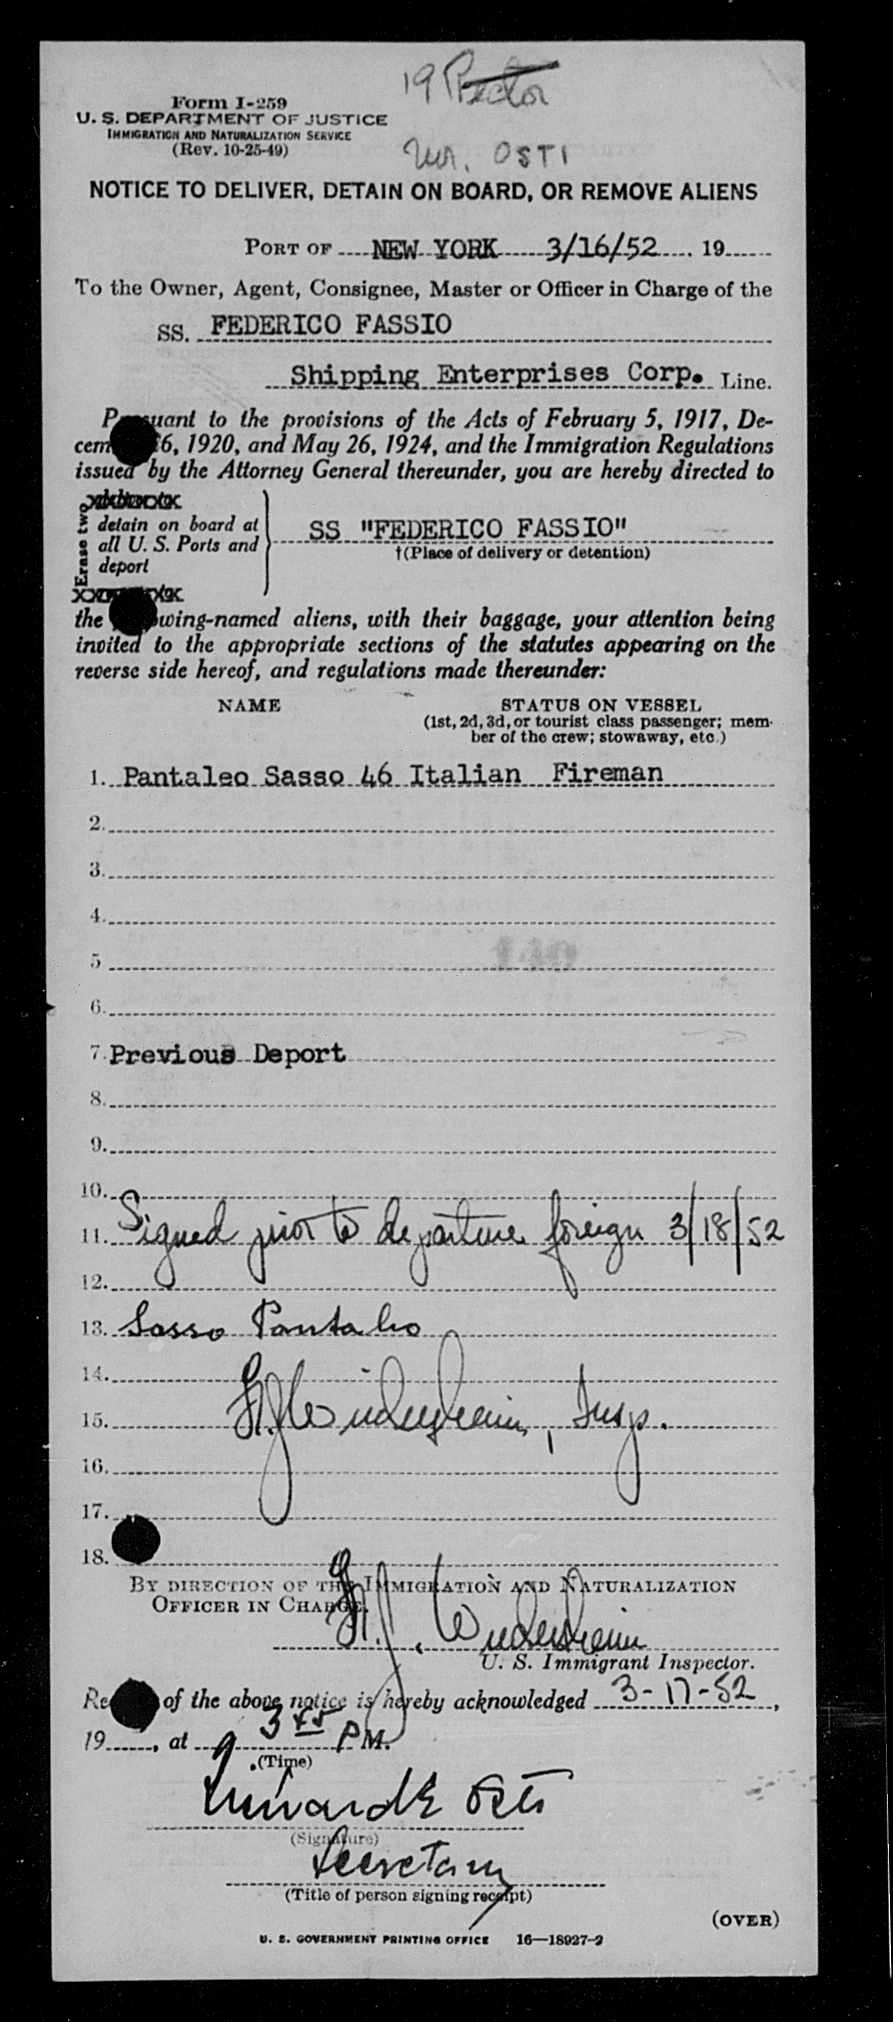 19 Rector
Form I-259
U. S. DEPARTMENT OF JUSTICE
IMMIGRATION AND NATURALIZATION SERVICE
(Rev. 10-25-49)
Mr. OSTI
NOTICE TO DELIVER, DETAIN ON BOARD, OR REMOVE ALIENS
PORT OF NEW YORK 3/16/52 19
To the Owner, Agent, Consignee, Master or Officer in Charge of the
SS. FEDERICO FASSIO
Shipping Enterprises Corp. Line.
Pursuant to the provisions of the Acts of February 5, 1917, De-
cem 6, 1920, and May 26, 1924, and the Immigration Regulations
issued by the Attorney General thereunder, you are hereby directed to
Erase two
detain on board at
all U. S. Ports and
deport
SS "FEDERICO FASSIO"
†(Place of delivery or detention)
the owing-named aliens, with their baggage, your attention being
invited to the appropriate sections of the statutes appearing on the
reverse side hereof, and regulations made thereunder:
NAME STATUS ON VESSEL
(1st, 2d, 3d, or tourist class passenger; mem-
ber of the crew; stowaway, etc.)
1. Pantaleo Sasso 46 Italian Fireman
2.
3.
4.
5
6.
7. Previous Deport
8.
9.
10.
11. Signed prior to departure foreign 3/18/52
12.
13. Sasso Pantaleo
14.
15. Insp.
16.
17.
18.
BY DIRECTION OF THE IMMIGRATION AND NATURALIZATION
OFFICER IN CHARGE.
U. S. Immigrant Inspector.
Re of the above notice is hereby acknowledged 3-17-52,
19, at 3 45 P M.
(Time)
Osti
(Signature)
Secretary
(Title of person signing receipt)
(OVER)
U. S. GOVERNMENT PRINTING OFFICE 16—18927-2